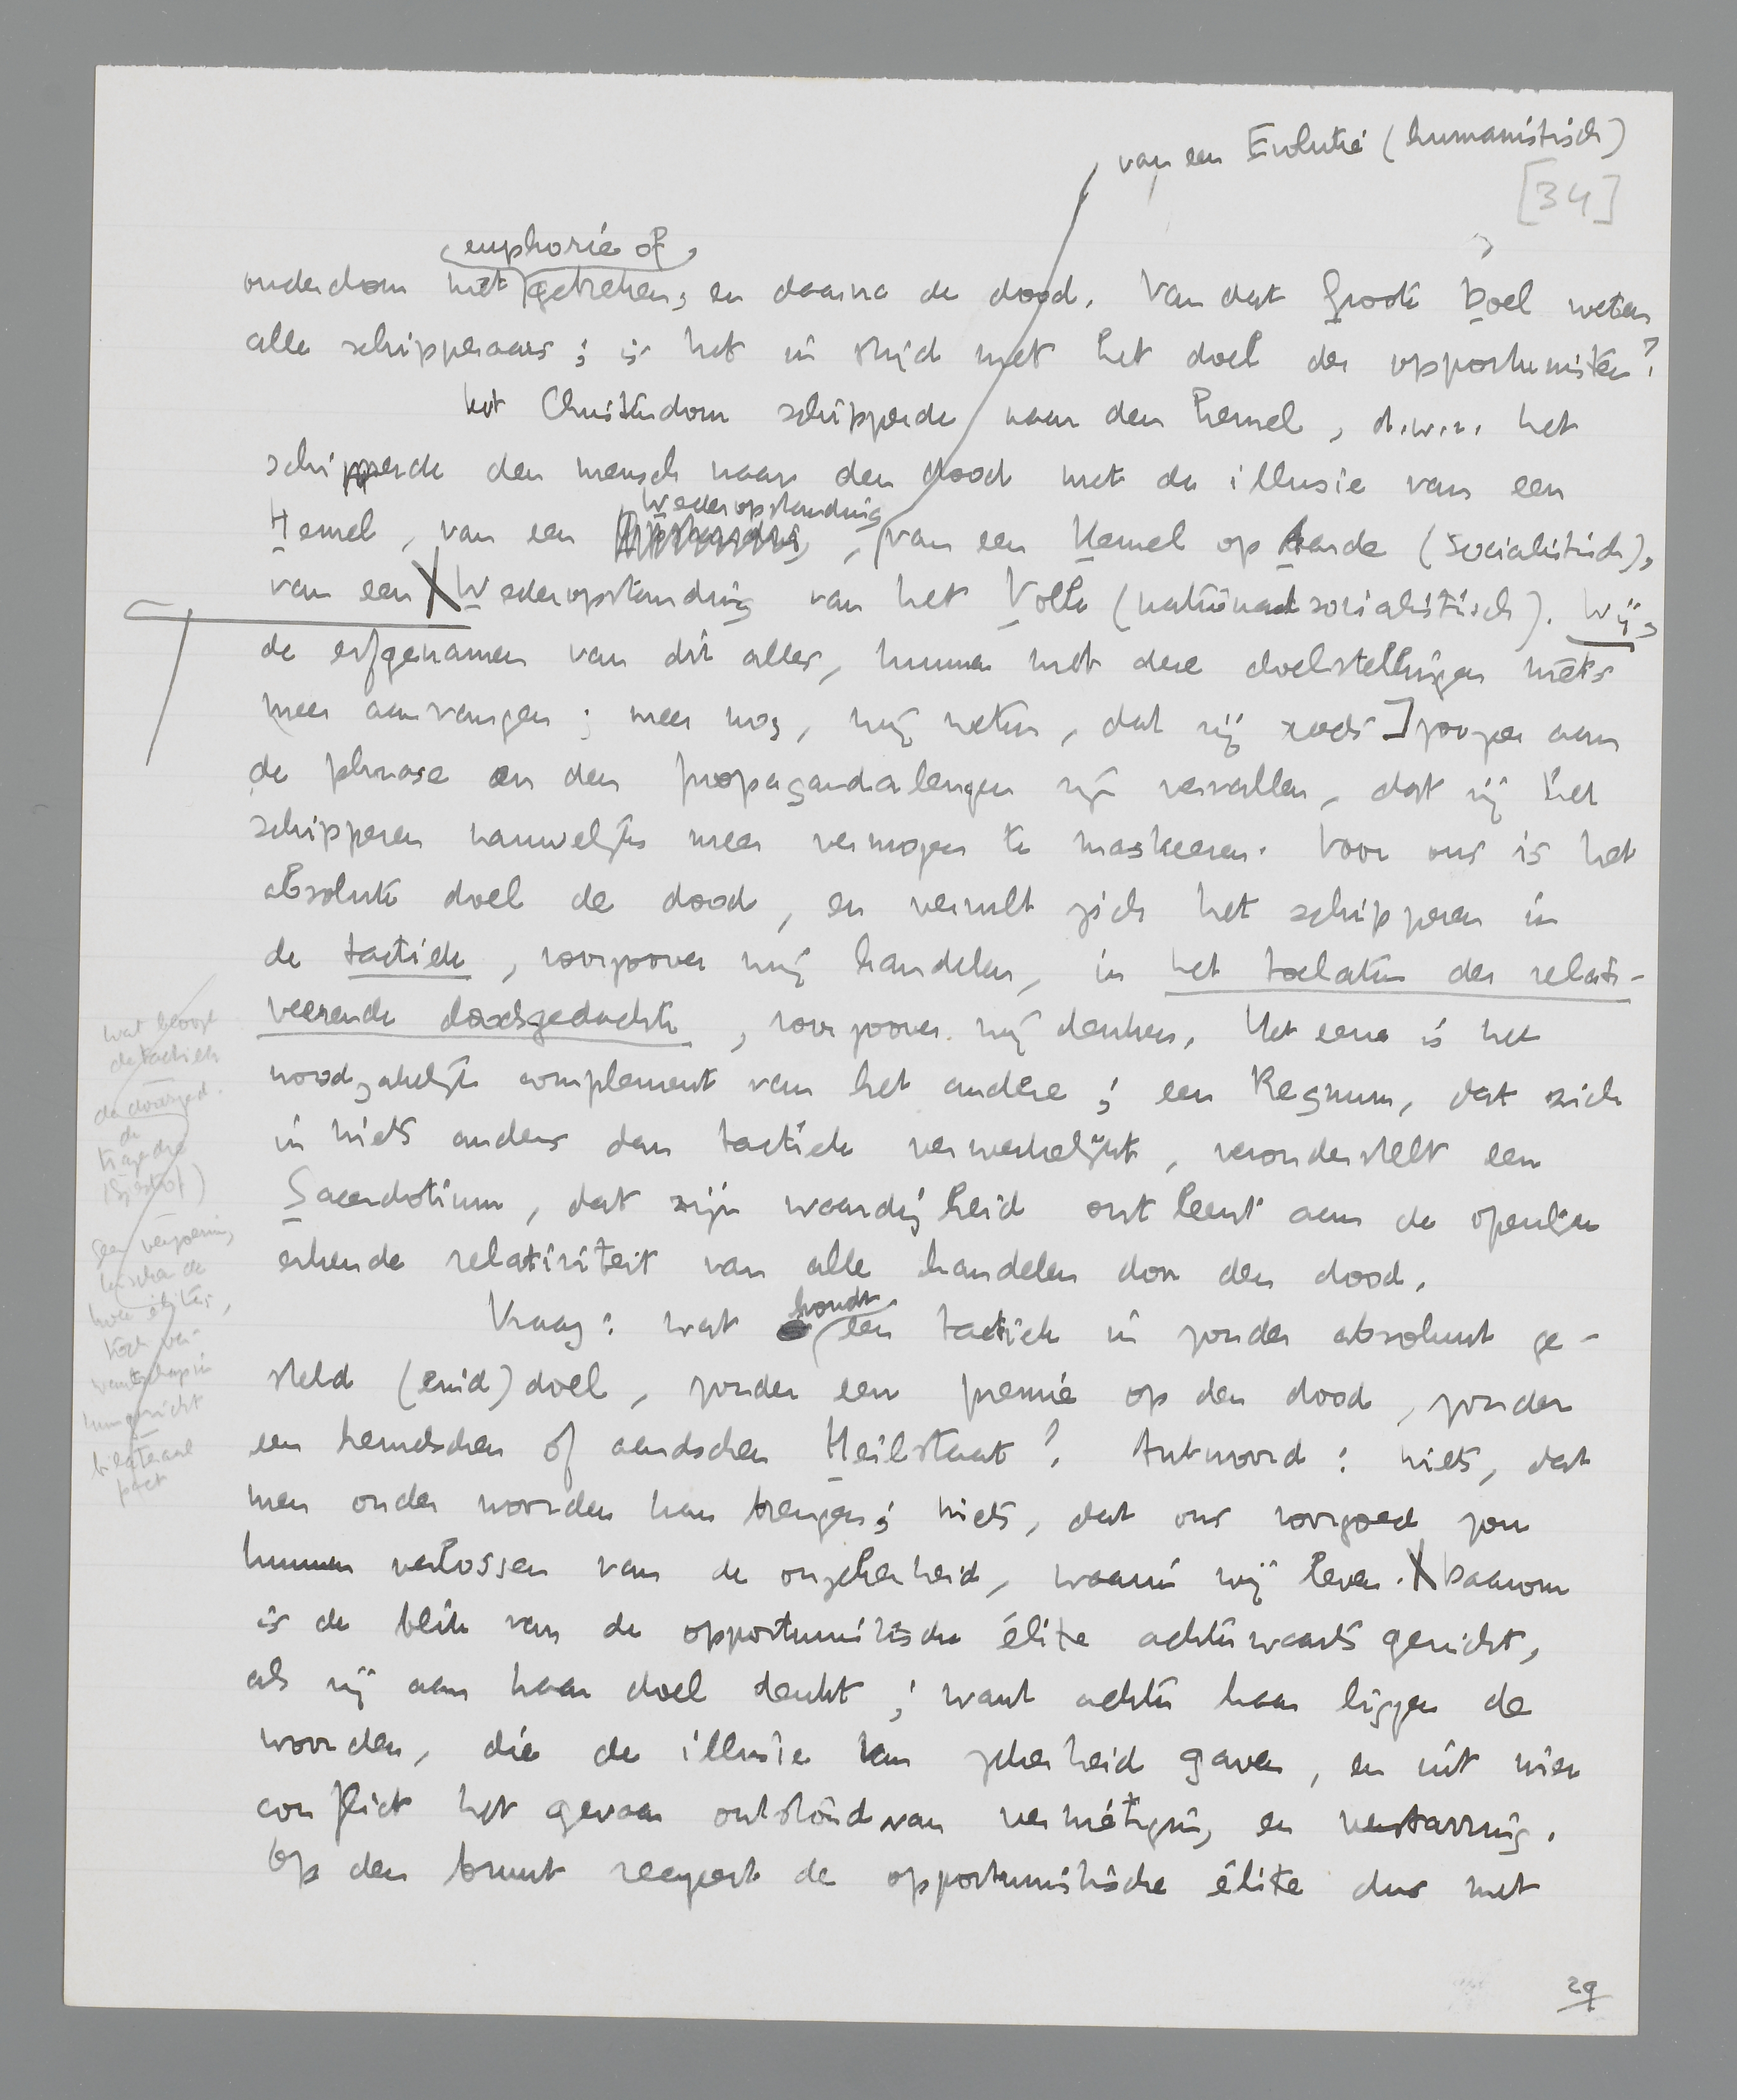 van een Evolutie (humanistisch)
[34]
euphorie of
ouderdom met gebreken, en daarna de dood. Van dat Groote Doel weten
alle schipperaars; is het in strijd met het doel der opportunisten?
Het Christendom schipperde naar den hemel, d.w.z. het
schipperde den mensch naar den dood met de illusie van een
Wederopstanding
Hemel, van een , van een Hemel op Aarde (socialistisch),
van een Wederopstanding van het Volk (nationaalsocialistisch). Wij,
de erfgenamen van dit alles, kunnen met deze doelstellingen niets
meer aanvangen; meer nog, wij weten, dat zij reeds zoozeer aan
de phrase en den propagandaleugen zijn vervallen, dat zij het
schipperen nauwelijks meer vermogen te maskeeren. Voor ons is het
absolute doel de dood, en vervult zich het schipperen in
de tactiek, voorzoover wij handelen, in het toelaten der relati-
veerende doodsgedachte, voorzoover wij denken. Het eene is het
noodzakelijk complement van het andere; een Regnum, dat zich
in niets anders dan tactiek verwerkelijkt, veronderstelt een
Sacerdotium, dat zijn waardigheid ontleent aan de openlijk
erkende relativiteit van alle handelen door den dood.
houdt
Vraag: wat een tactiek in zonder absoluut ge-
steld (eind)doel, zonder een premie op den dood, zonder
een hemelschen of aardschen Heilstaat? Antwoord: niets, dat
men onder woorden kan brengen; niets, dat ons voorgoed zou
kunnen verlossen van de onzekerheid, waarin wij leven. Daarom
is de blik van de opportunistische élite achterwaarts gericht,
als zij aan haar doel denkt; want achter haar liggen de
woorden, die de illusie van zekerheid gaven, en uit wier
conflict het gevaar ontstond van vernietiging en verstarring.
Op den bluf reageert de opportunistische élite dus met
wat beoogt
de tactiek
de doodsged.
de
tragedie
geen verzoening
tusschen de
twee élites,
toch ver-
wantschap in
hun gericht
bilaterale
pact
29